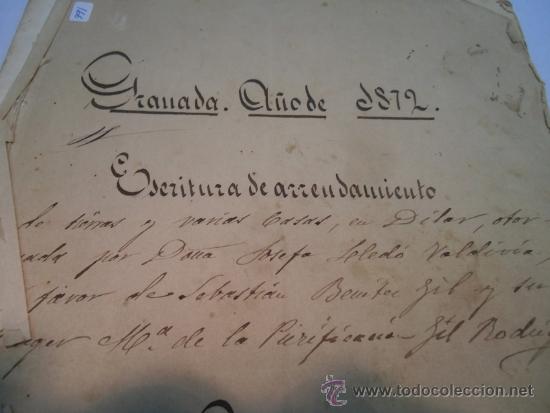 991
Granada. Año de 1872.
Escritura de arrendamiento
de tierras y varias casas, en Dilar, otor
gada por Doña Josefa Toledo Valdivia,
favor de Sebastián Benitez Gil y su
muger Mª de la Purificación Gil Rodrig
www.todocoleccion.net